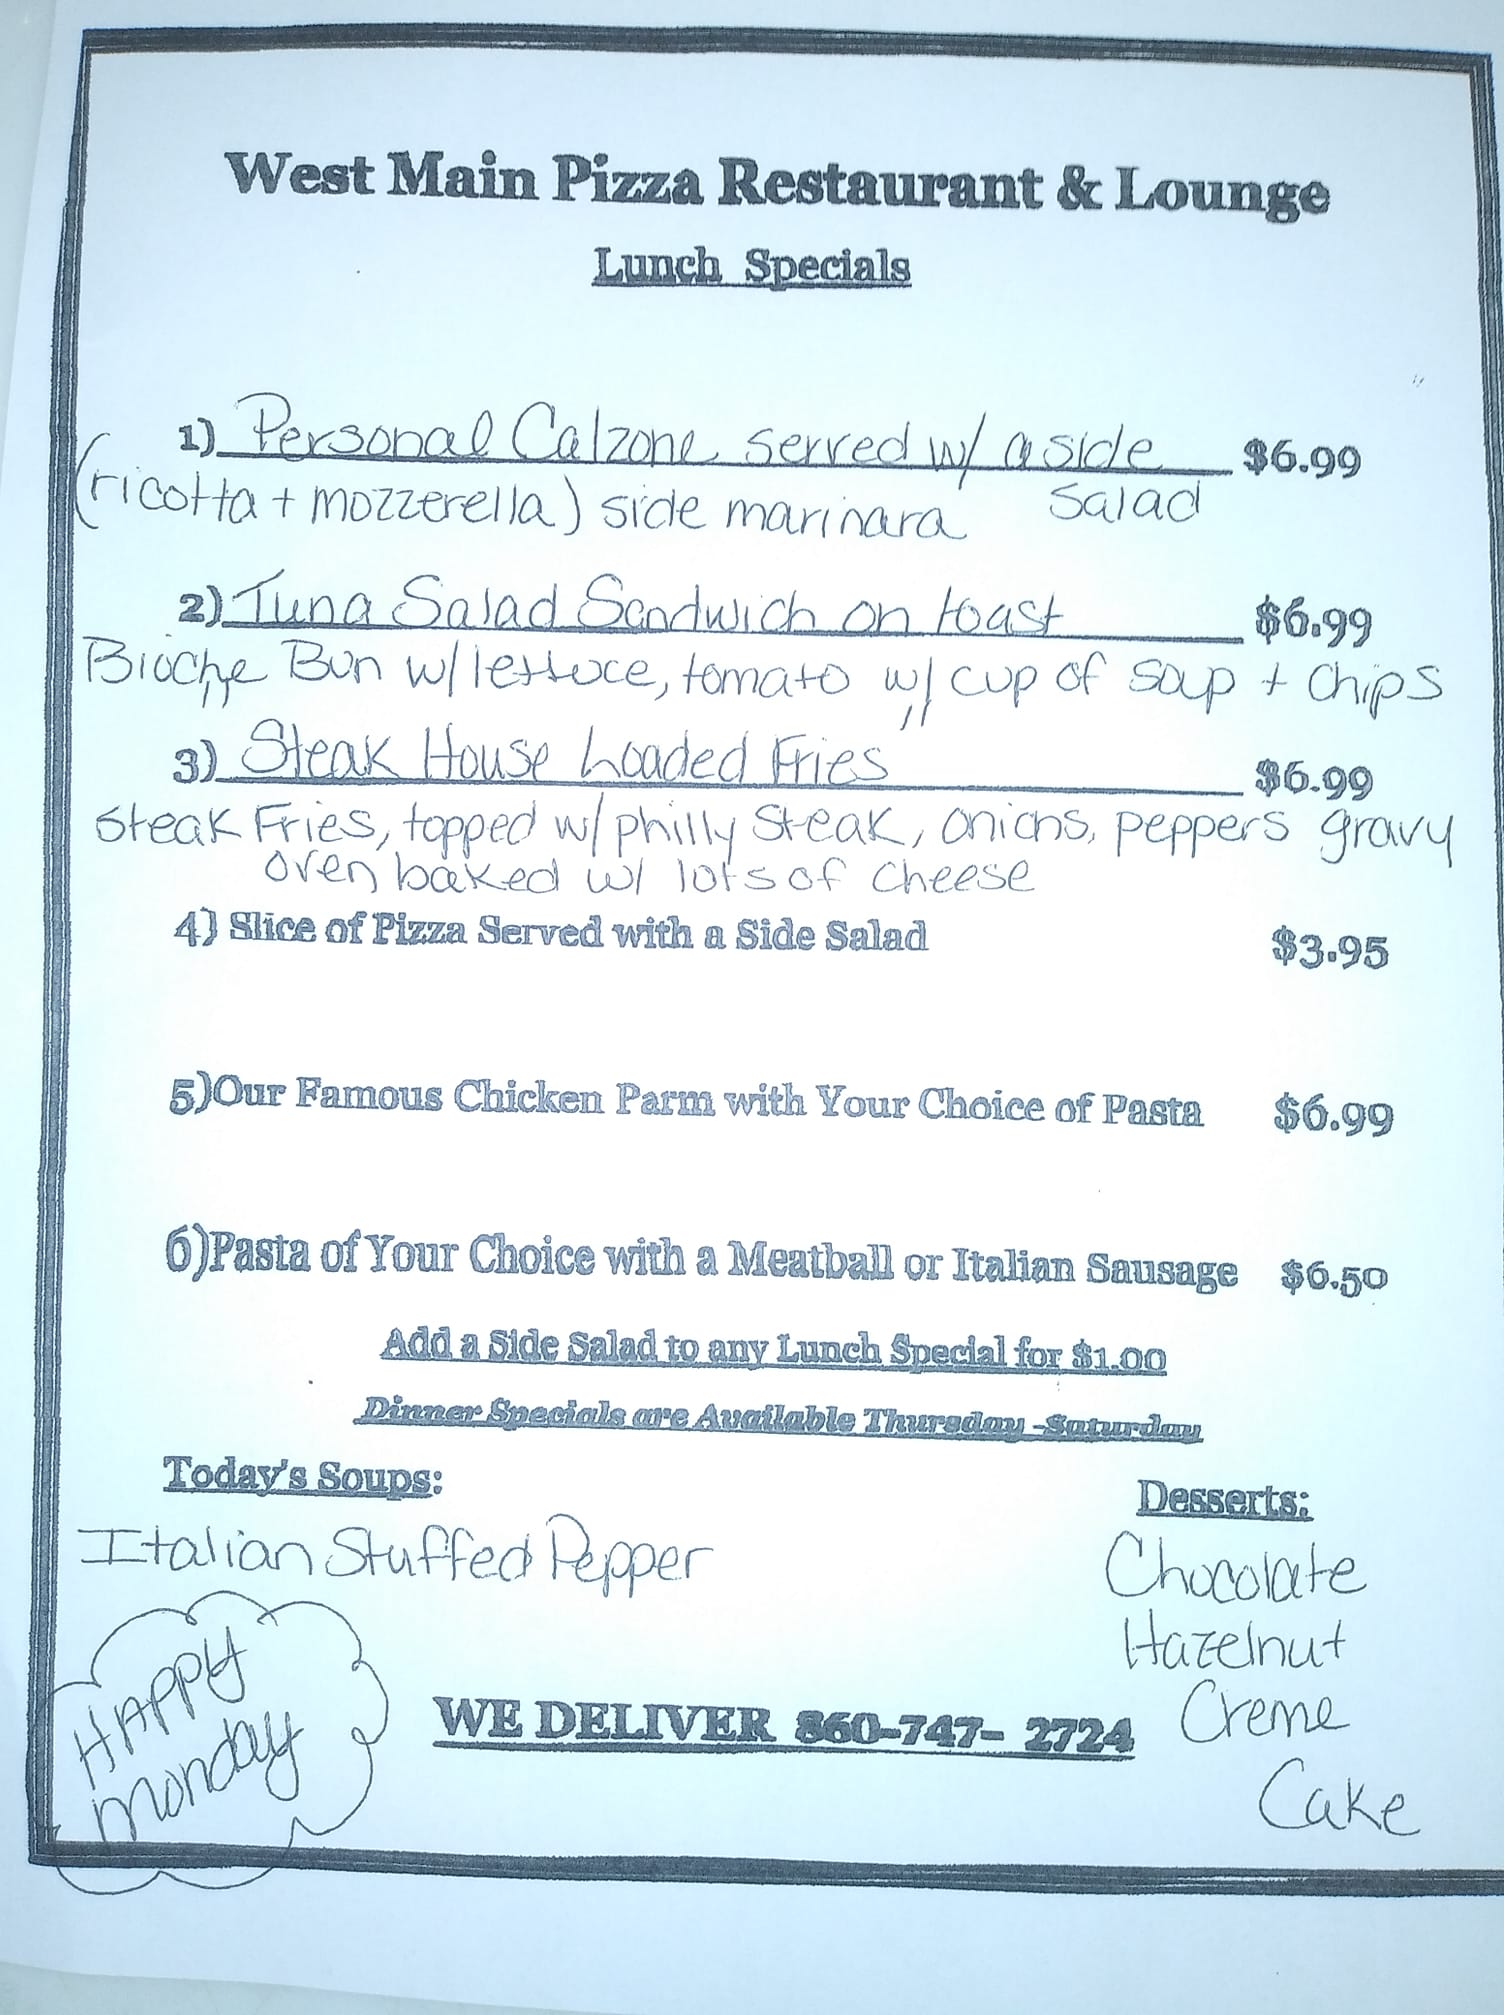 West Main Pizza Restaurant & Lounge
Lunch Specials
1) Personal Calzone served w/ a side $6.99
(ricotta + mozzerella) side marinara salad
2) Tuna Salad Sandwich on toast $6.99
Bioche Bun w/ lettuce, tomato w/ cup of soup + chips
3) Steak House Loaded Fries" $6.99
Steak Fries, topped w/ philly steak, onions, peppers gravy
oven baked w/ lots of cheese
4) Slice of Pizza Served with a Side Salad $3.95
5)Our Famous Chicken Parm with Your Choice of Pasta $6.99
6)Pasta of Your Choice with a Meatball or Italian Sausage $6.50
Add a Side Salad to any Lunch Special for $1.00
Dinner Specials are Available Thursday -Saturday
Today's Soups:
Italian Stuffed Pepper
Desserts:
Chocolate
Hazelnut
Creme
Cake
HAPPY
monday
WE DELIVER 860-747- 2724